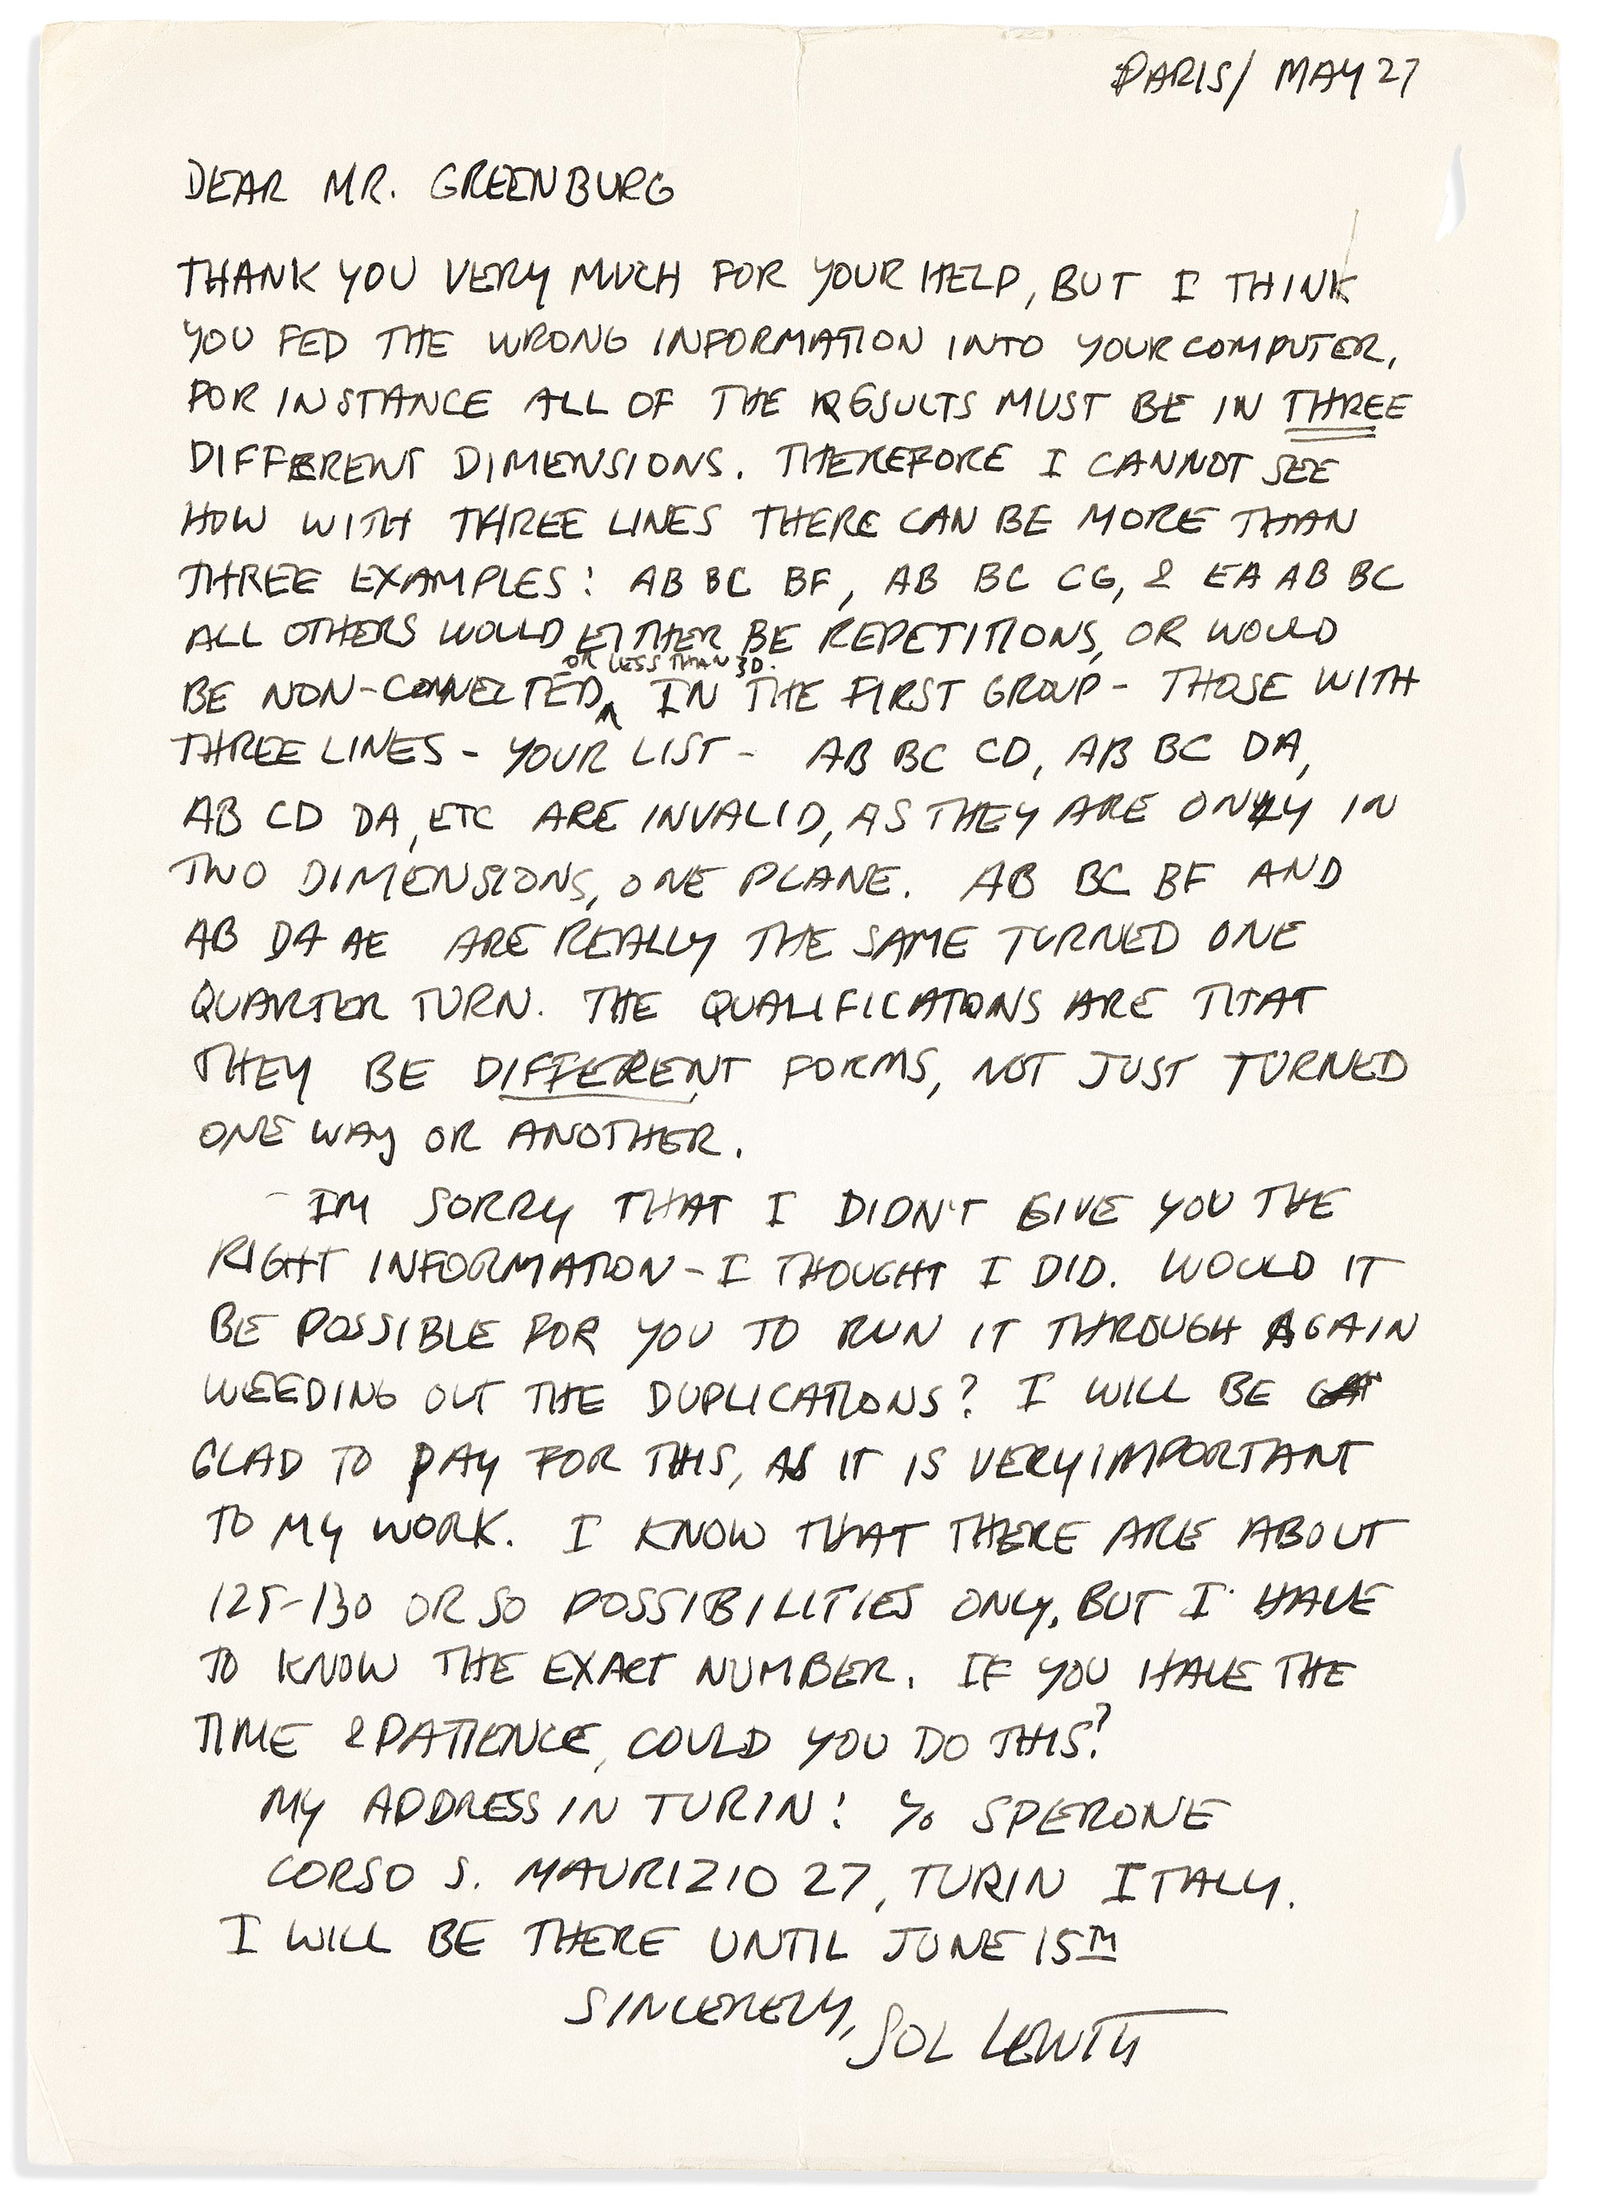 PARIS/ MAY 27
DEAR MR. GREENBURG
THANK YOU VERY MUCH FOR YOUR HELP, BUT I THINK
YOU FED THE WRONG INFORMATION INTO YOUR COMPUTER,
FOR INSTANCE ALL OF THE RESULTS MUST BE IN THREE
DIFFERENT DIMENSIONS. THEREFORE I CANNOT SEE
HOW WITH THREE LINES THERE CAN BE MORE THAN
THREE EXAMPLES: AB BC BF, AB BC CG, & EA AB BC
ALL OTHERS WOULD EITHER BE REPETITIONS, OR WOULD
OR LESS THAN 3D.
BE NON-CONNECTED^ IN THE FIRST GROUP - THOSE WITH
THREE LINES - YOUR LIST - AB BC CD, AB BC DA,
AB CD DA, ETC ARE INVALID, AS THEY ARE ONLY IN
TWO DIMENSIONS, ONE PLANE. AB BC BF AND
AB DA AE ARE REALLY THE SAME TURNED ONE
QUARTER TURN. THE QUALIFICATIONS ARE THAT
THEY BE DIFFERENT FORMS, NOT JUST TURNED
ONE WAY OR ANOTHER.
IM SORRY THAT I DIDN'T GIVE YOU THE
RIGHT INFORMATION - I THOUGHT I DID. WOULD IT
BE POSSIBLE FOR YOU TO RUN IT THROUGH AGAIN
WEEDING OUT THE DUPLICATIONS? I WILL BE
GLAD TO PAY FOR THIS, AS IT IS VERY IMPORTANT
TO MY WORK. I KNOW THAT THERE ARE ABOUT
125-130 OR SO POSSIBILITIES ONLY, BUT I HAVE
TO KNOW THE EXACT NUMBER. IF YOU HAVE THE
TIME & PATIENCE, COULD YOU DO THIS?
MY ADDRESS IN TURIN: c/o SPERONE
CORSO S. MAURIZIO 27, TURIN ITALY.
I WILL BE THERE UNTIL JUNE 15TH
SINCERELY, SOL LEWITT